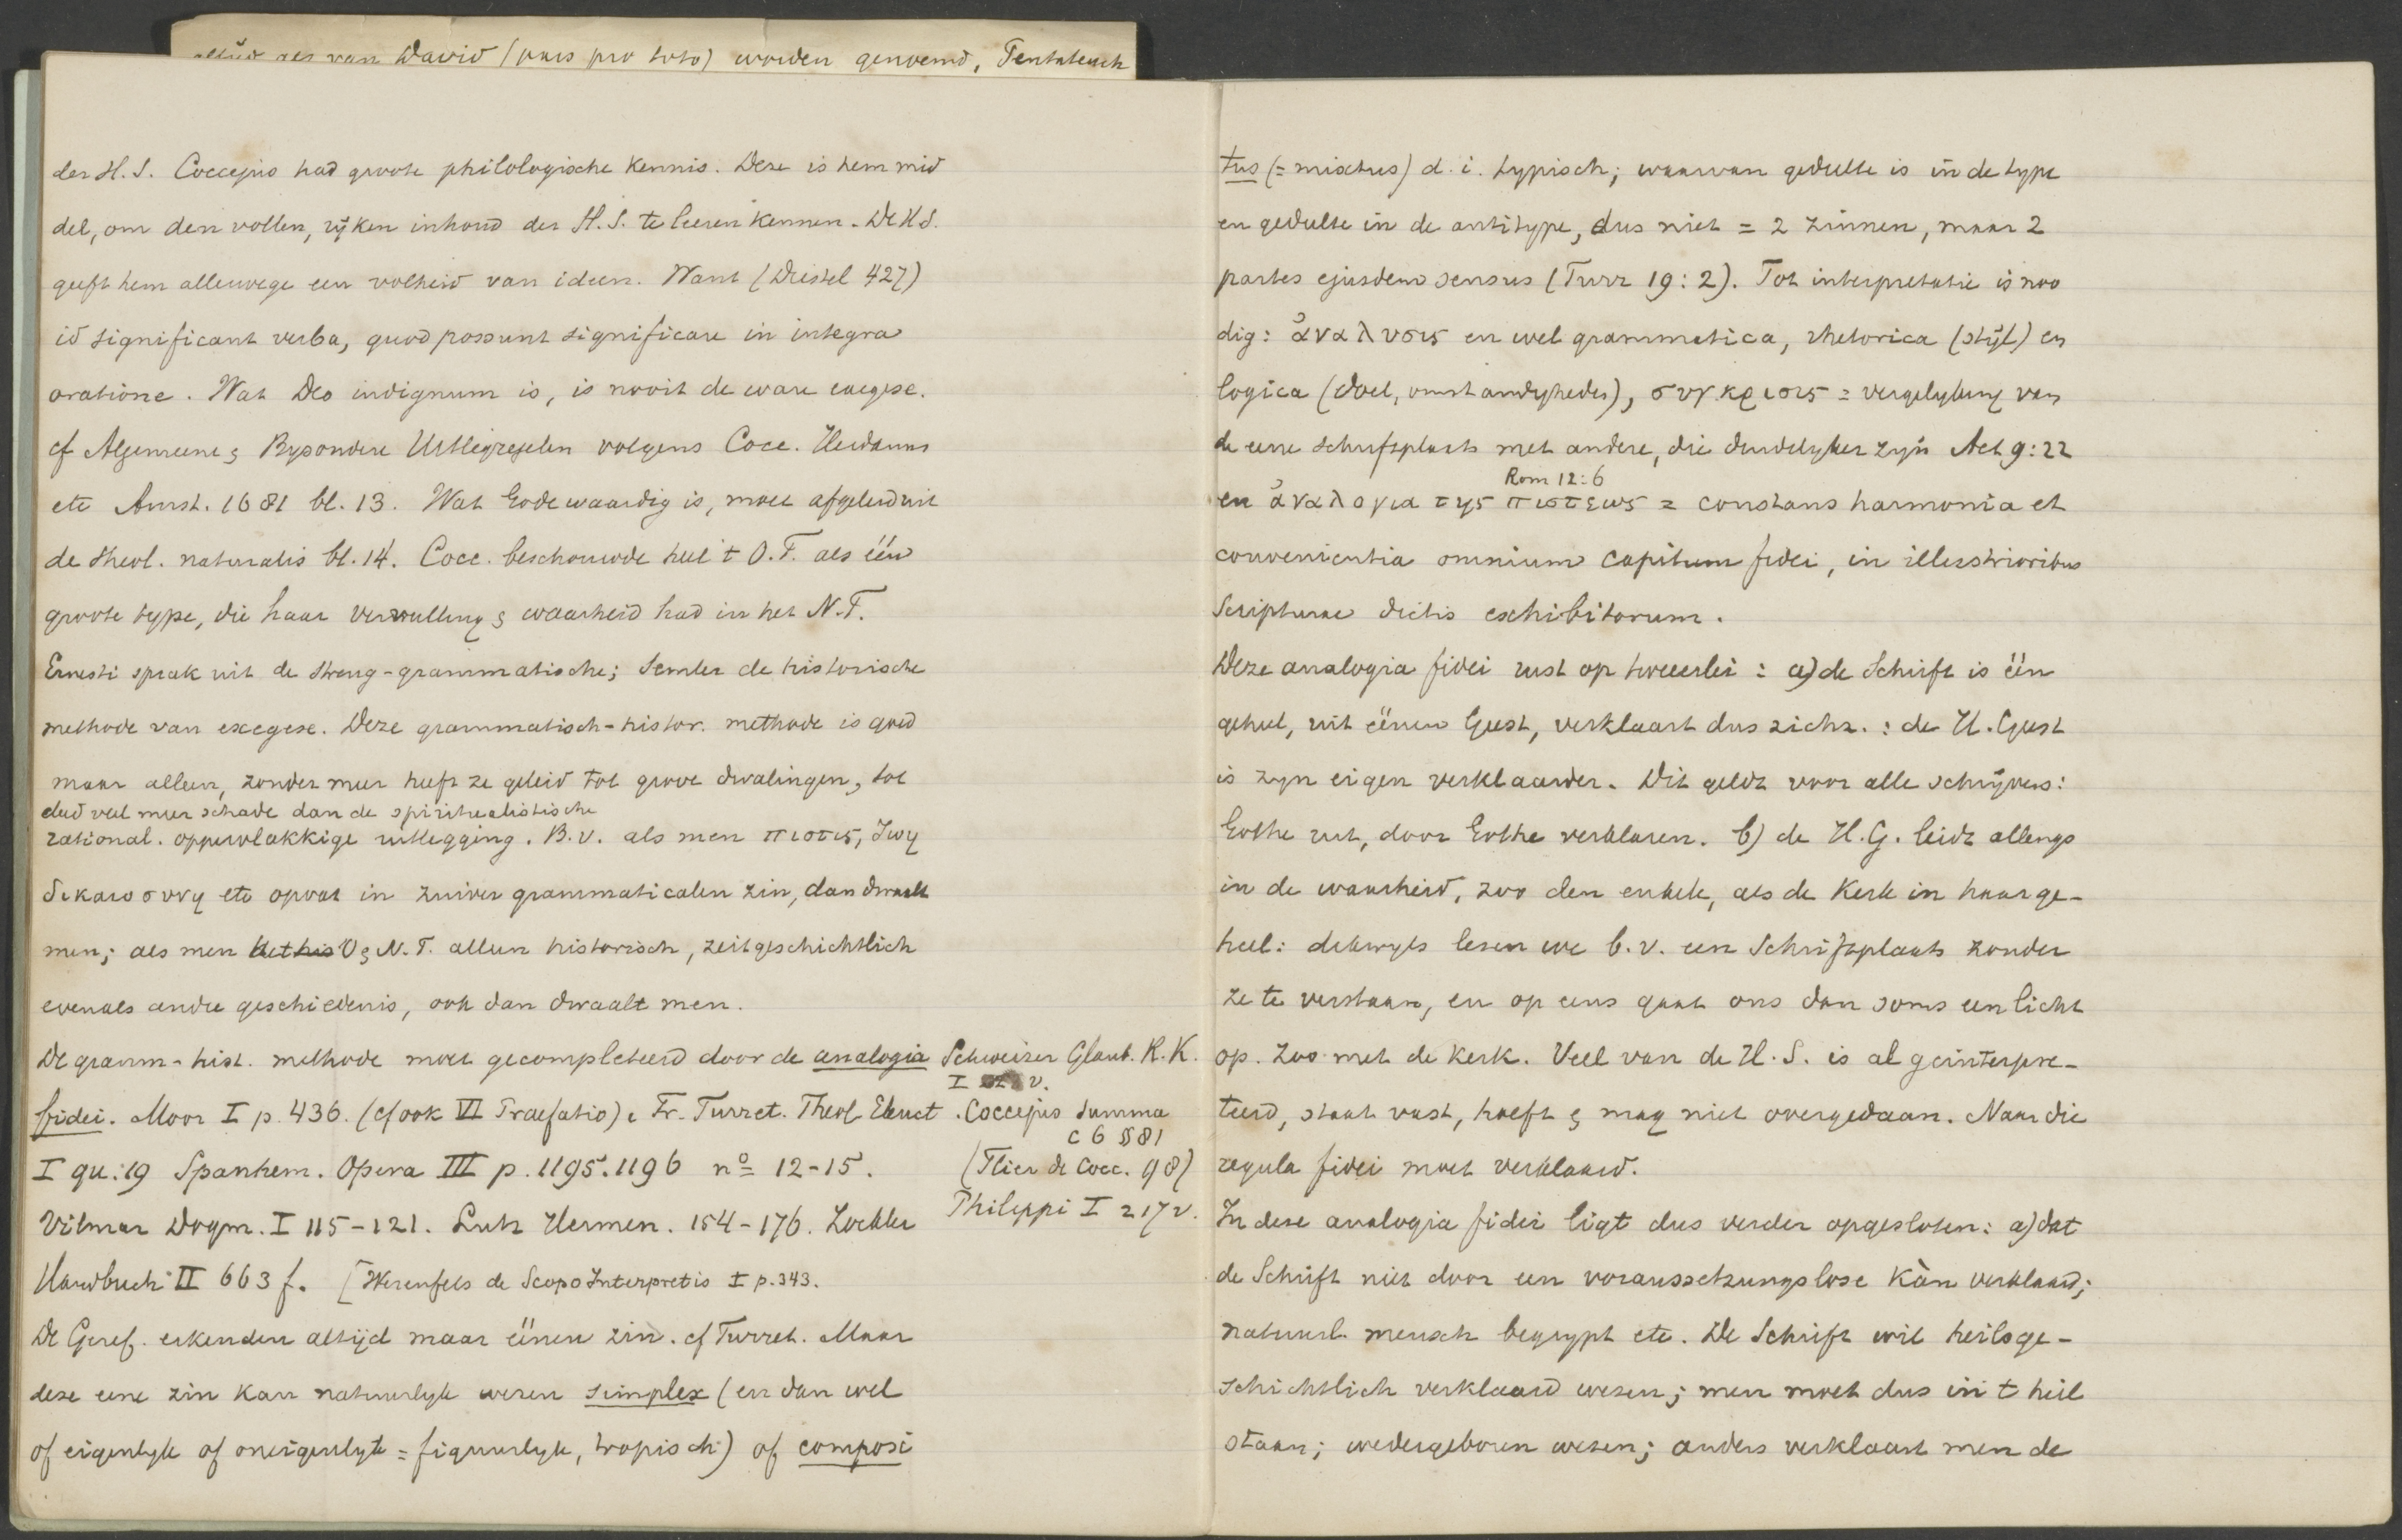 altijd als van David (pars pro toto) worden genoemd, Pentateuch
der H. S. Coccejus had groote philologische kennis. Deze is hem mid
del, om den vollen, rijken inhoud der H. S. te leeren kennen. De H S.
geeft hem allerwege een volheid van ideen. Want (Diestel 427)
id significant verba, quod possunt significare in integra
oratione. Wat Deo indignum is, is nooit de ware exegese.
cf Algemeene & Byzondere Uitlegregelen volgens Cocc. Heidanus
etc Amst. 1681 bl. 13. Wat Gode waardig is, moet afgeleid uit
de theol. naturalis bl. 14. Cocc. beschouwde heel 't O. T. als één
groote type, die haar vervulling & waarheid had in het N. T.
Ernesti sprak uit de streng-grammatische; Semler de historische
methode van exegese. Deze grammatisch-histor. methode is goed
maar alleen, zonder meer heeft ze geleid tot grove dwalingen, tot
deed veel meer schade dan de spiritualistische
rational. oppervlakkige uitlegging. B.v. als men πιστις, ζωη
δικαιοσυνη etc opvat in zuiver grammaticalen zin, dan dwaalt
men; als men het his O & N. T. alleen historisch, zeitgeschichtlich
evenals andre geschiedenis, ook dan dwaalt men.
De gramm-hist. methode moet gecompleteerd door de analogia
fidei. Moor I p. 436. (cf ook VI Praefatio), Fr. Turret. Theol Elenct
I qu: 19 Spanhem. Opera III p. 1195. 1196 nº 12-15.
Vilmar Dogm. I 115-121. Lutz Hermen. 154-176. Zockler
Handbuch II 663 f. [Werenfels de Scopo Interpretis I p. 343.
De Geref. erkenden altijd maar éénen zin. cf Turret. Maar
deze eene zin kan natuurlyk wezen simplex (en dan wel
of eigenlyk of oneigenlyk = figuurlyk, tropisch) of composi
Schweizer Glaub. R. K.
I v.
Coccejus Summa
C 6 § 81
(Flier de Cocc. 98)
Philippi I 217 v.
tus (= mixtus) d. i. typisch; waarvan gedeelte is in de type
en gedeelte in de antitype, dus niet = 2 zinnen, maar 2
partes ejusdem sensus (Turr 19: 2). Tot interpretatie is noo
dig: ἀναλυσις en wel grammatica, rhetorica (stijl) en
logica (doel, omstandigheden), συγκρισις = vergelyking van
de eene schriftplaats met andere, die duidelyker zyn Act 9: 22
Rom 12: 6
en ἀναλογια της πιστεως = constans harmonia et
convenientia omnium capitum fidei, in illustrioribus
Scripturae dictis exhibitorum.
Deze analogia fidei rust op tweeerlei: a) de Schrift is één
geheel, uit éénen Geest, verklaart dus zichz.: de H. Geest
is zyn eigen verklaarder. Dit geldt voor alle schrijvers:
Göthe uit, door Göthe verklaren. b) de H. G. leidt allengs
in de waarheid, zoo den enkele, als de Kerk in haar ge-
heel: dikwyls lezen we b. v. een Schriftplaats zonder
ze te verstaan, en op eens gaat ons dan soms een licht
op. Zoo met de kerk. Veel van de H. S. is al geinterpre-
teerd, staat vast, hoeft & mag niet overgedaan. Naar die
regula fidei moet verklaard.
In deze analogia fidei ligt dus verder opgesloten: a) dat
de Schrift niet door een voraussetzungslose kàn verklaard;
natuurl. mensch begrypt etc. De Schrift wil heilsge-
schichtlich verklaard wezen; men moet dus in 't heil
staan; wedergeboren wezen; anders verklaart men de